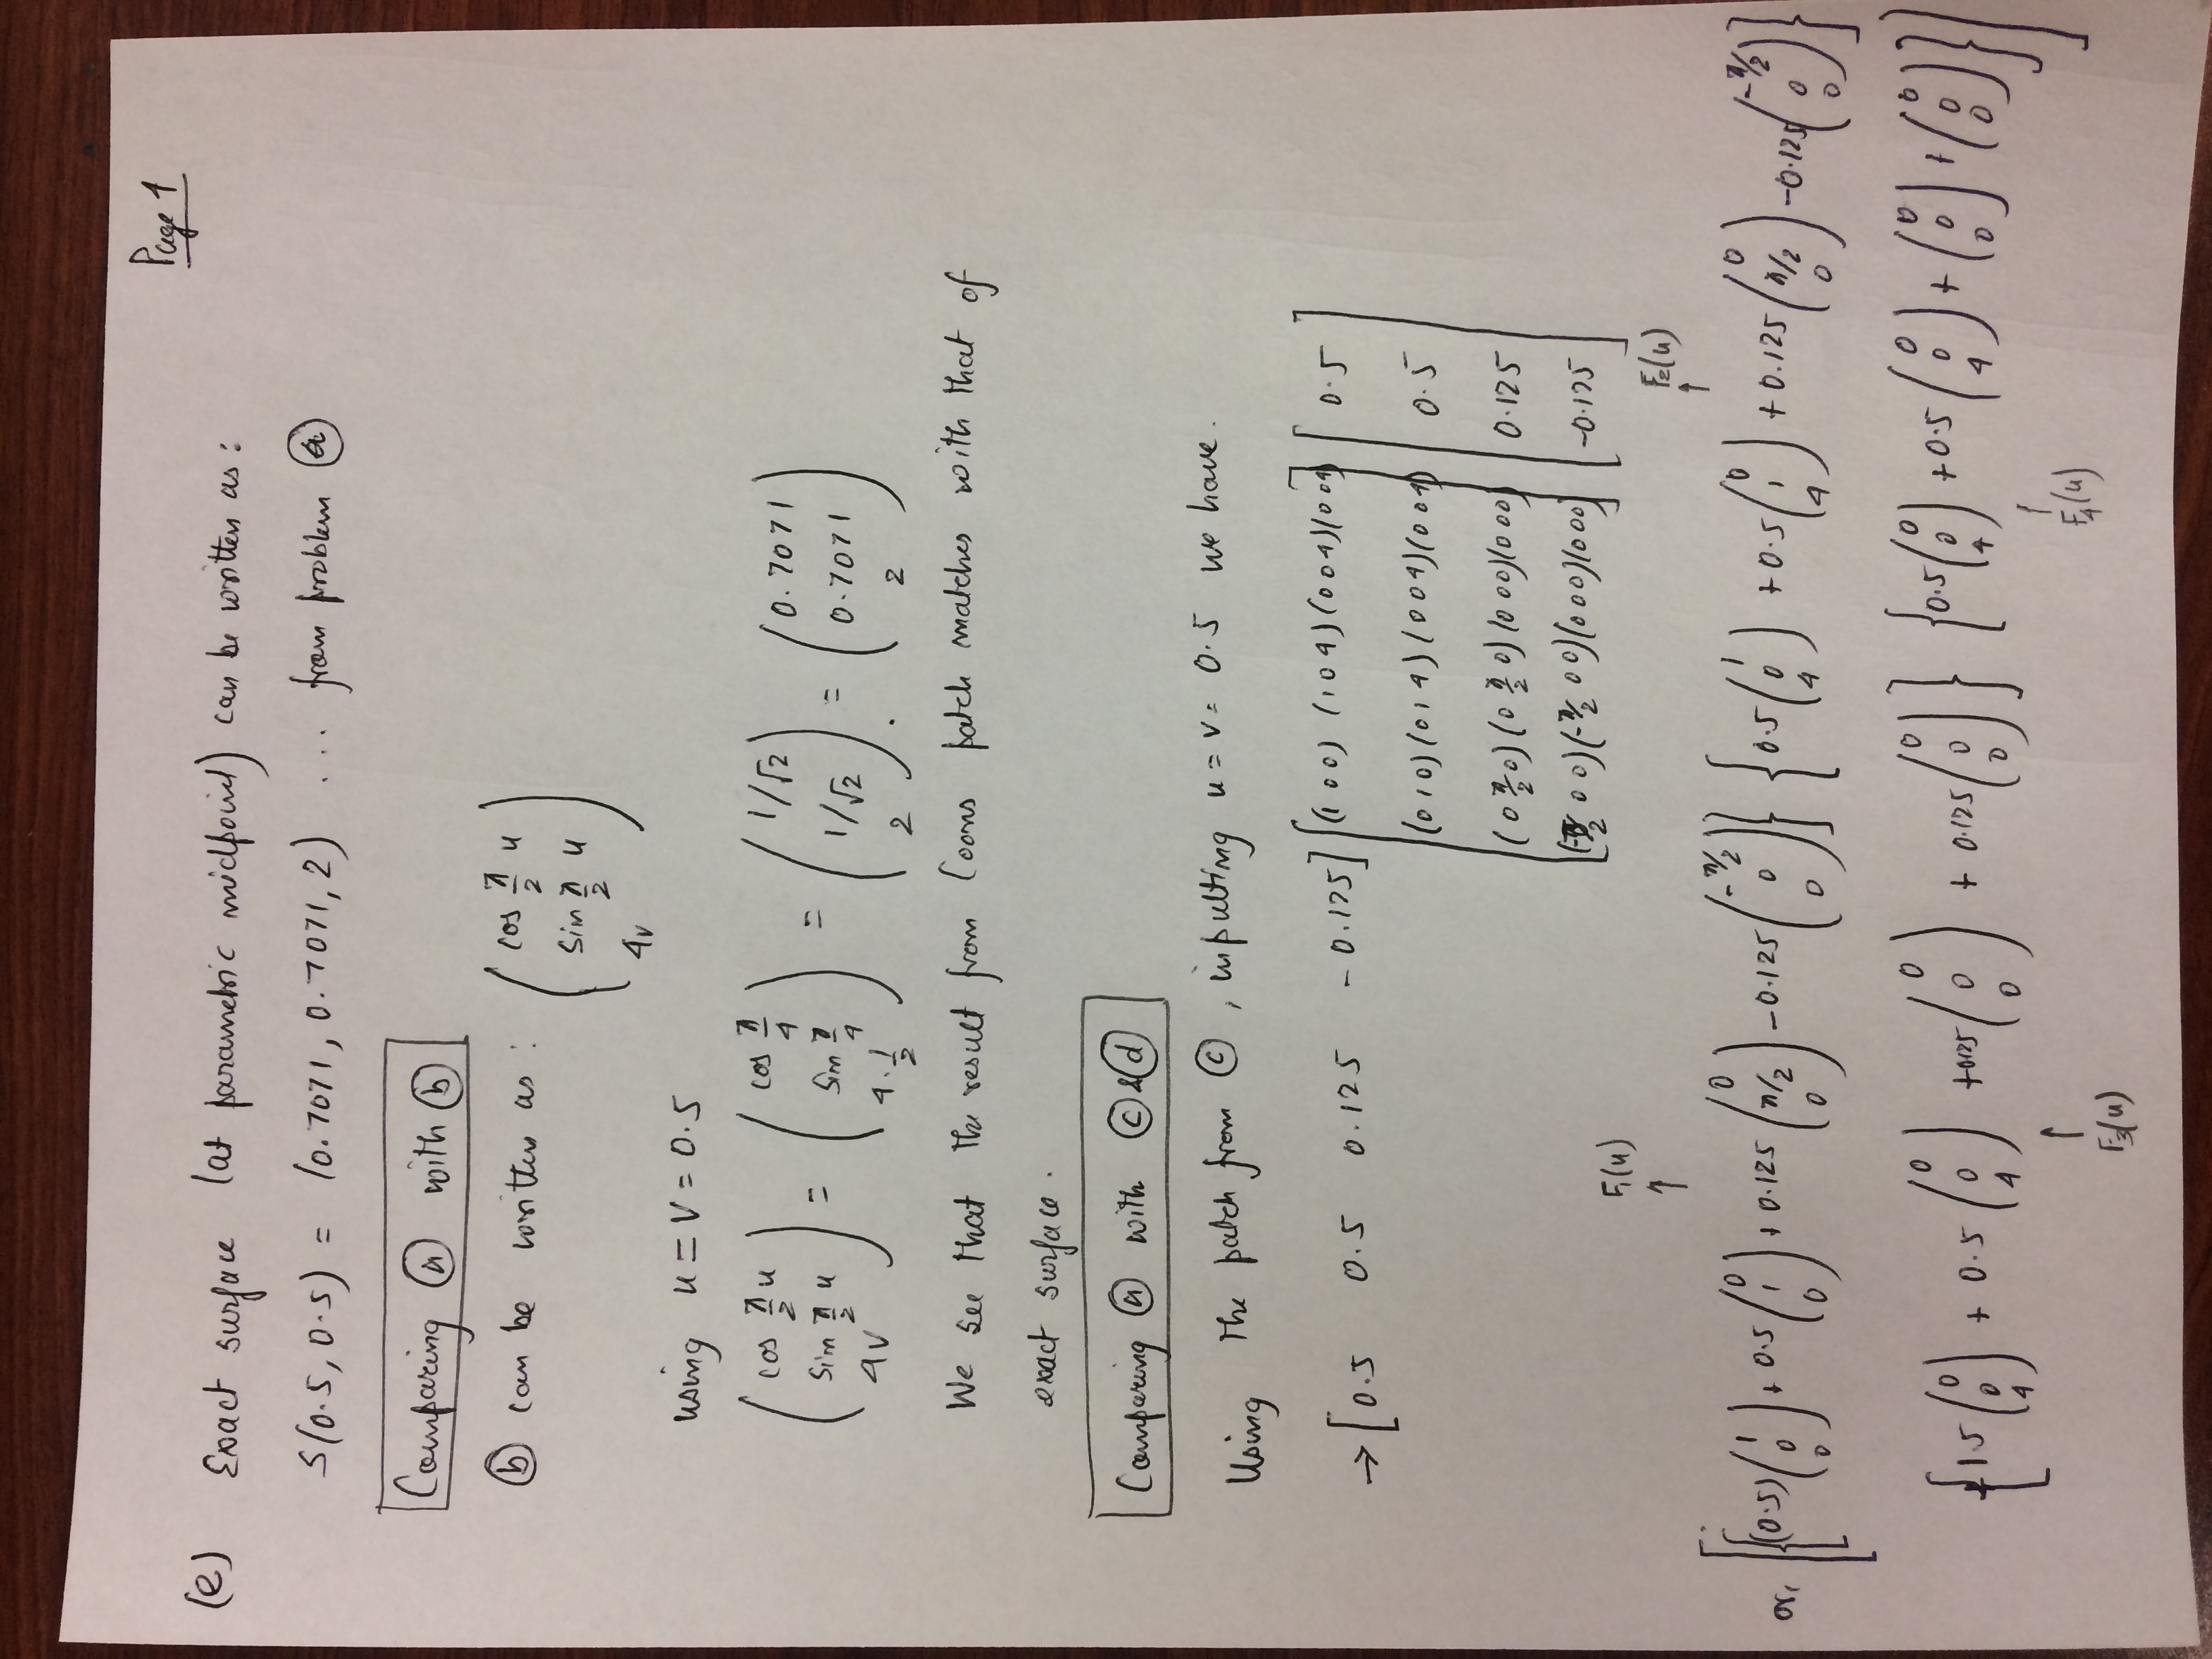 Page 1
(e) Exact surface (at parametric midpoint) can be written as:
S(0.5, 0.5) = (0.7071, 0.7071, 2) ... from problem (a)
Comparing (a) with (b)
(b) can be written as: (cos π/2 u, sin π/2 u, 4v)
using u = v = 0.5
(cos π/2 u, sin π/2 u, 4v) = (cos π/4, sin π/4, 4·1/2) = (1/√2, 1/√2, 2) = (0.7071, 0.7071, 2).
We see that the result from Coons patch matches with that of
exact surface.
Comparing (a) with (c) & (d)
Using the patch from (c), inputting u = v = 0.5 we have.
→ [0.5 0.5 0.125 -0.125] [(1 0 0) (1 0 4) (0 0 4) (0 0 4)] [0.5]
(0 1 0) (0 1 4) (0 0 4) (0 0 4) 0.5
(0 π/2 0) (0 π/2 0) (0 0 0) (0 0 0) 0.125
(-π/2 0 0) (-π/2 0 0) (0 0 0) (0 0 0) -0.125
F1(u) F2(u)
or, [{(0.5)(1 0 0) + 0.5(0 1 0) + 0.125(0 π/2 0) - 0.125(-π/2 0 0)} {0.5(1 0 4) + 0.5(0 1 4) + 0.125(0 π/2 0) - 0.125(-π/2 0 0)}
{1.5(0 0 4) + 0.5(0 0 4) + 0.125(0 0 0) + 0.125(0 0 0)} {0.5(0 0 4) + 0.5(0 0 4) + (0 0 0) + (0 0 0)}]
F3(u) F4(u)